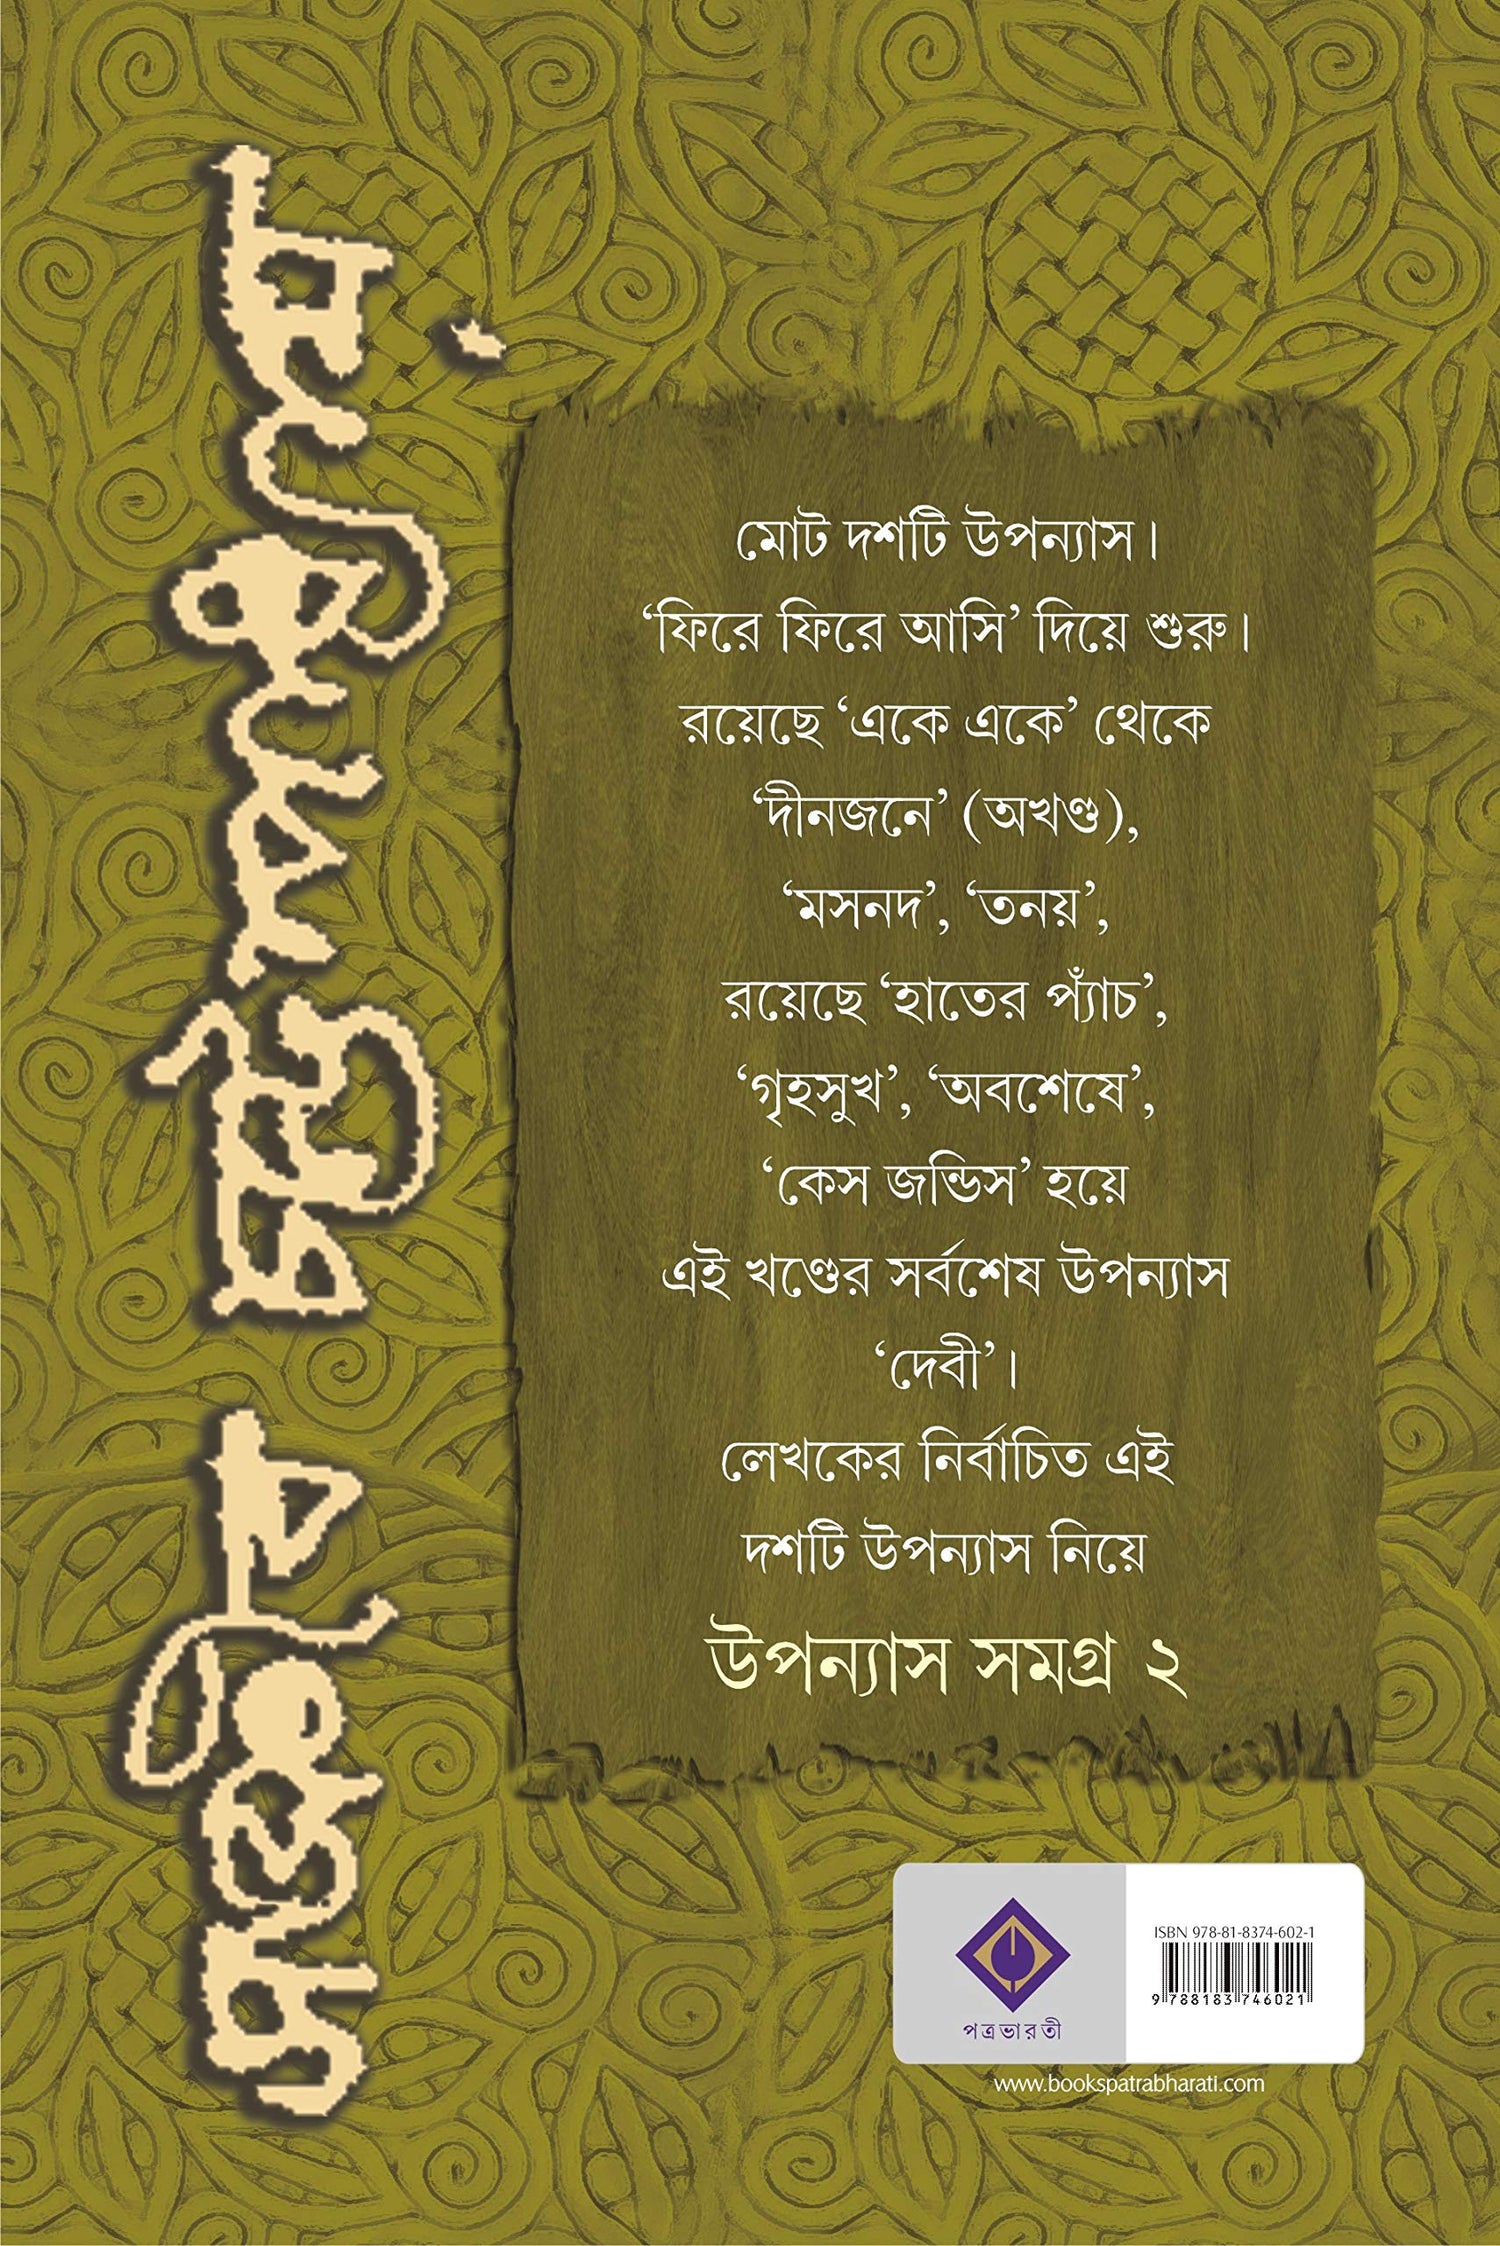 মোট দশটি উপন্যাস।
‘ফিরে ফিরে আসি’ দিয়ে শুরু।
রয়েছে ‘একে একে’ থেকে
‘দীনজনে’ (অখণ্ড),
‘মসনদ’, ‘তনয়’,
রয়েছে ‘হাতের প্যাঁচ’,
‘গৃহসুখ’, ‘অবশেষে’,
‘কেস জন্ডিস’ হয়ে
এই খণ্ডের সর্বশেষ উপন্যাস
‘দেবী’।
লেখকের নির্বাচিত এই
দশটি উপন্যাস নিয়ে
উপন্যাস সমগ্র ২
ISBN 978-81-8374-602-1
9 788183 746021
পত্রভারতী
www.bookspatrabharati.com